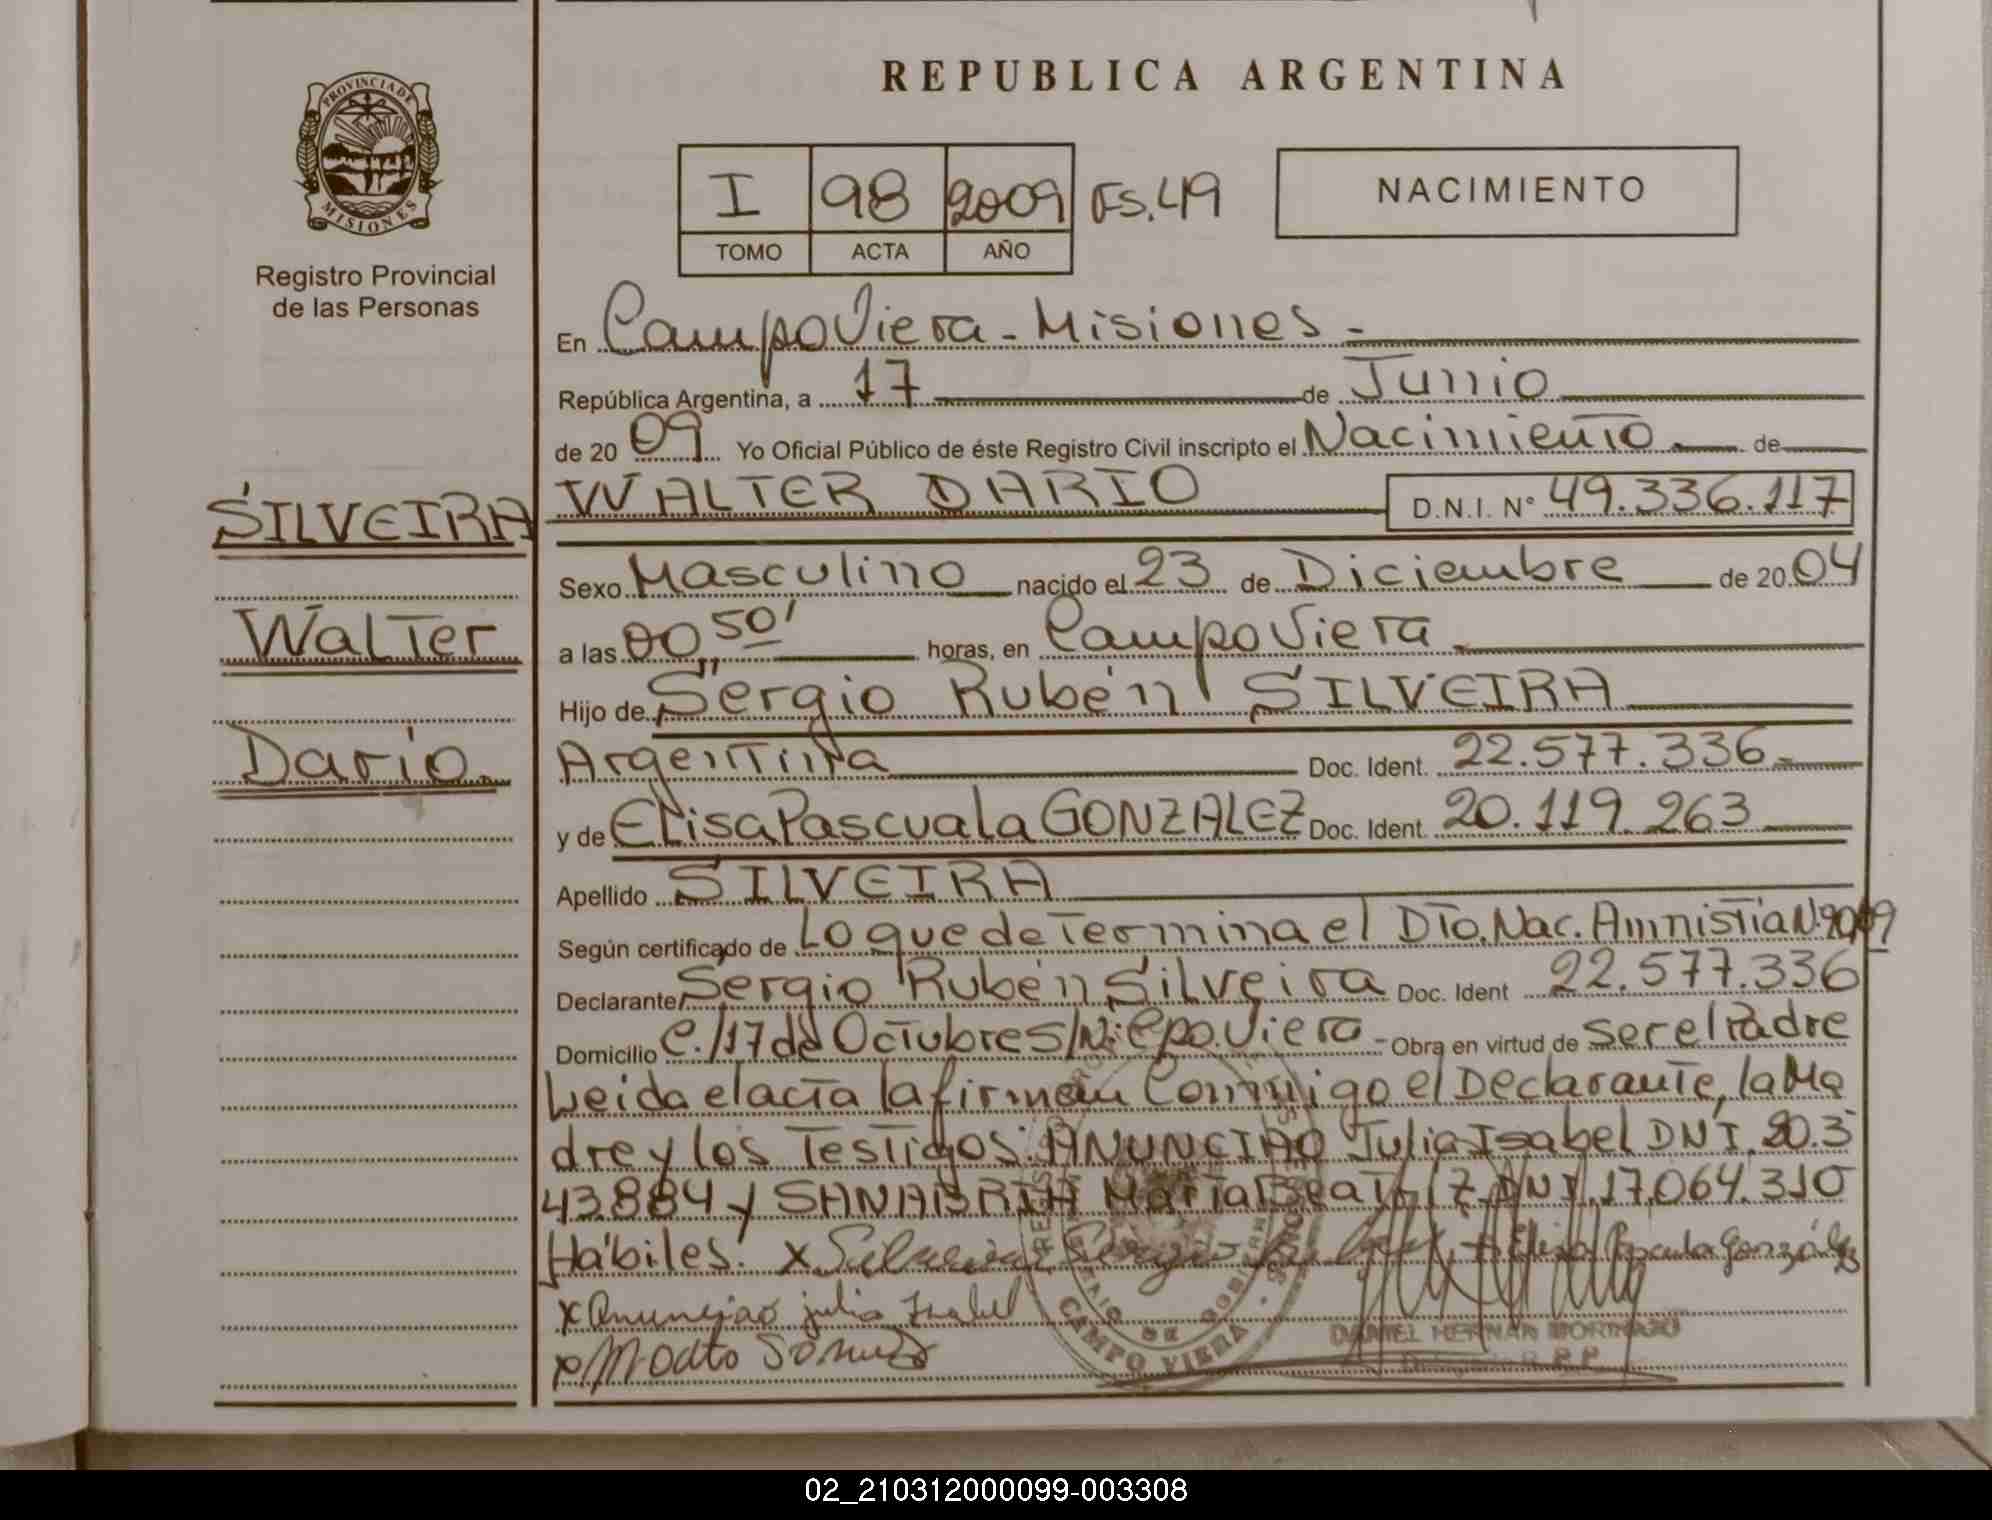 REPUBLICA ARGENTINA
PROVINCIA DE MISIONES
Registro Provincial
de las Personas
I 98 2009 Fs.49
TOMO ACTA AÑO
NACIMIENTO
En Campo Viera - Misiones -
República Argentina, a 17 de Junio
de 20 09 Yo Oficial Público de éste Registro Civil inscripto el Nacimiento de
SILVEIRA
Walter
Dario
WALTER DARIO D.N.I. Nº 49.336.117
Sexo Masculino nacido el 23 de Diciembre de 20 04
a las 00,50' horas, en Campo Viera
Hijo de Sergio Rubén SILVEIRA
Argentina Doc. Ident. 22.577.336
y de Elisa Pascuala GONZALEZ Doc. Ident. 20.119.263
Apellido SILVEIRA
Según certificado de Lo que determina el Dto. Nac. Amnistia N:
Declarante Sergio Rubén Silveira Doc. Ident 22.577.336
Domicilio C./17 de Octubre S/N: Cpo. Viera - Obra en virtud de ser el Padre
Leida el acta la firman Conmigo el Declarante, la Ma
dre y los Testigos: ANUNCIAO Julia Isabel DNI. 20.3
43.884 y SANABRIA Maria Beatriz DNI. 17.064.310
Hábiles. x Silveira Sergio x Elisa Pascuala González
x Anunciao julia Isabel
x
CAMPO VIERA
DANIEL HERNAN
02_210312000099-003308